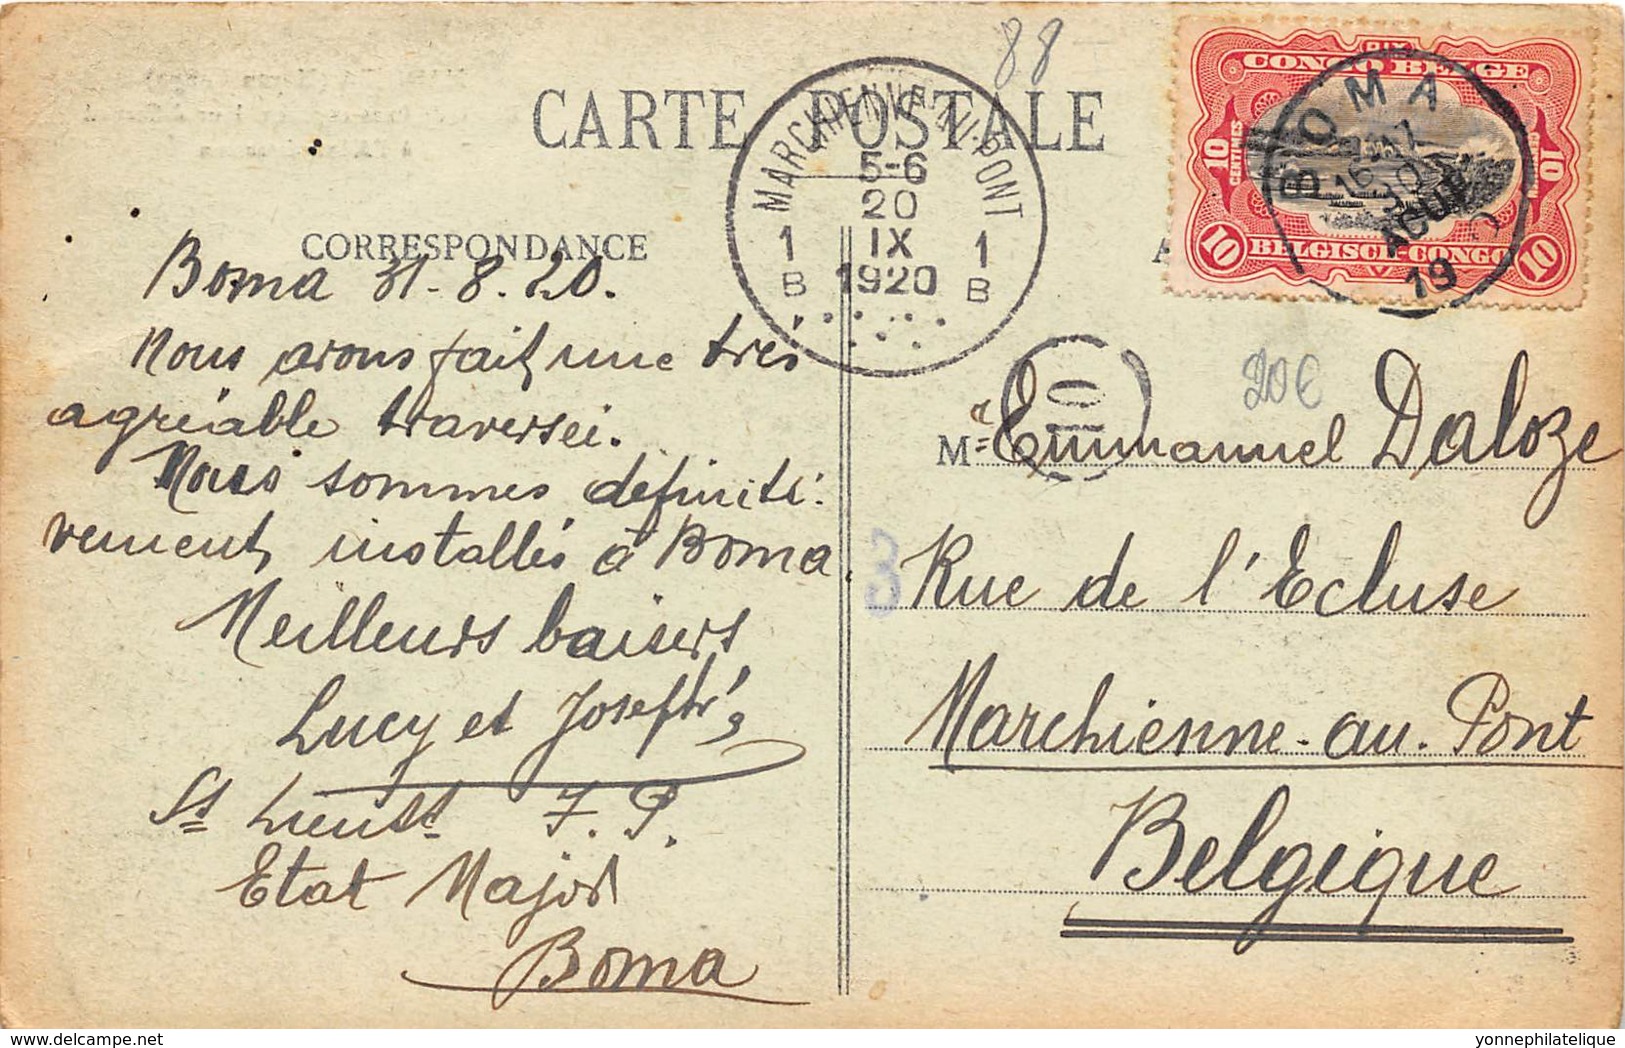 88
CARTE POSTALE
CORRESPONDANCE
Boma 31-8.20.
Nous avons fait une très
agréable traversée.
Nous sommes définiti-
vement installés à Boma.
Meilleurs baisers
Lucy et Joseph
St Lieut
Etat Major
Boma
MARCHIENNE-AU-PONT
5-6
20
IX
1920
1 1
B B
DIX
CONGO BELGE
10 CENTIMES
10
BELGISCH-CONGO
10 10
BOMA
AOUT
19
10
20€
3
M Emmanuel Daloze
Rue de l'Ecluse
Marchienne-au-Pont
Belgique
delcampe.net
yonnephilatelique